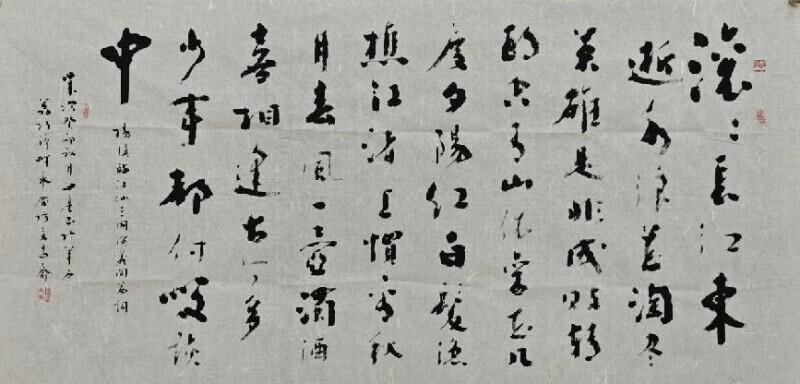 滚〻长江东
逝水浪花淘尽
英雄是非成败转
头空青山依旧在几
度夕阳红白发渔
樵江渚上惯看秋
月春风一壶浊酒
喜相逢古今多
少事都付笑谈
中
杨慎临江仙三国演义开篇词